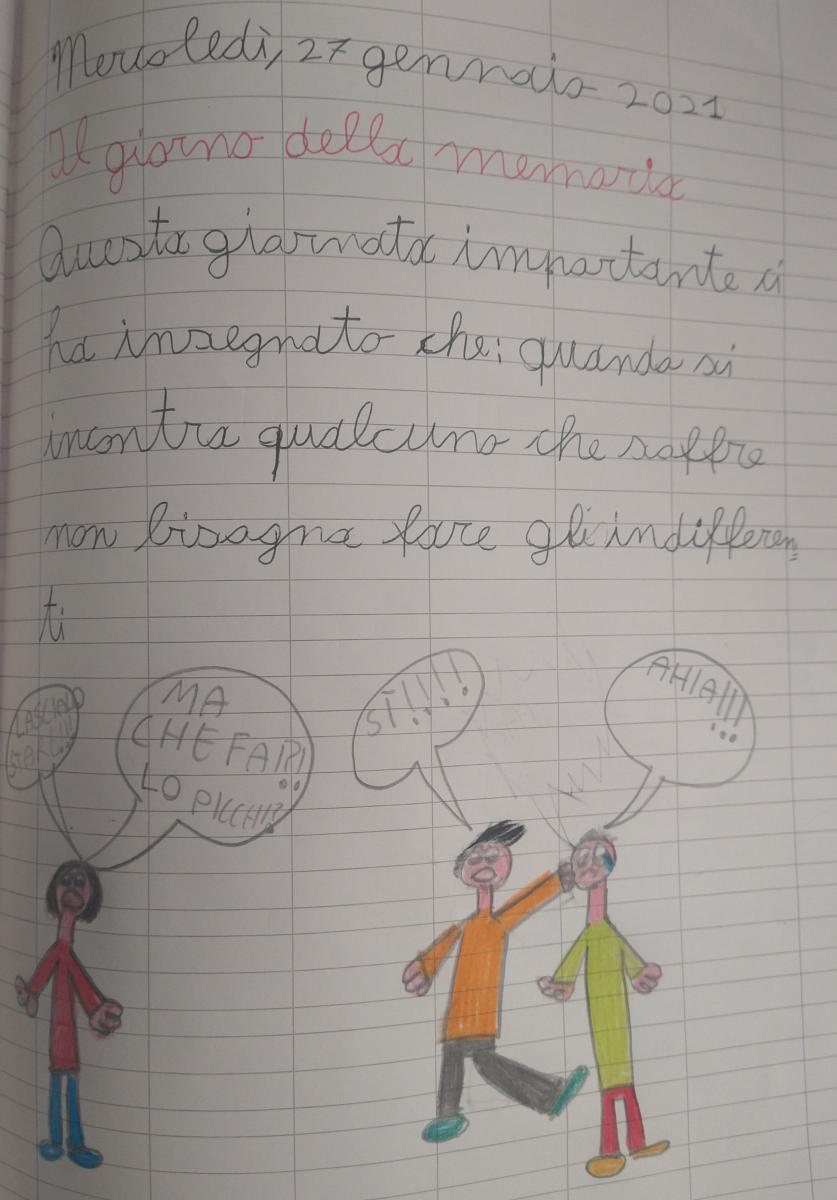 Mercoledì, 27 gennaio 2021
Il giorno della memoria
Questa giornata importante ci
ha insegnato che: quando si
incontra qualcuno che soffre
non bisogna fare gli indifferen=
ti
LASCIALO
STARE!!!
MA
CHE FAI?!
LO PICCHI!?
SÌ!!!!
AHIA!!!
...